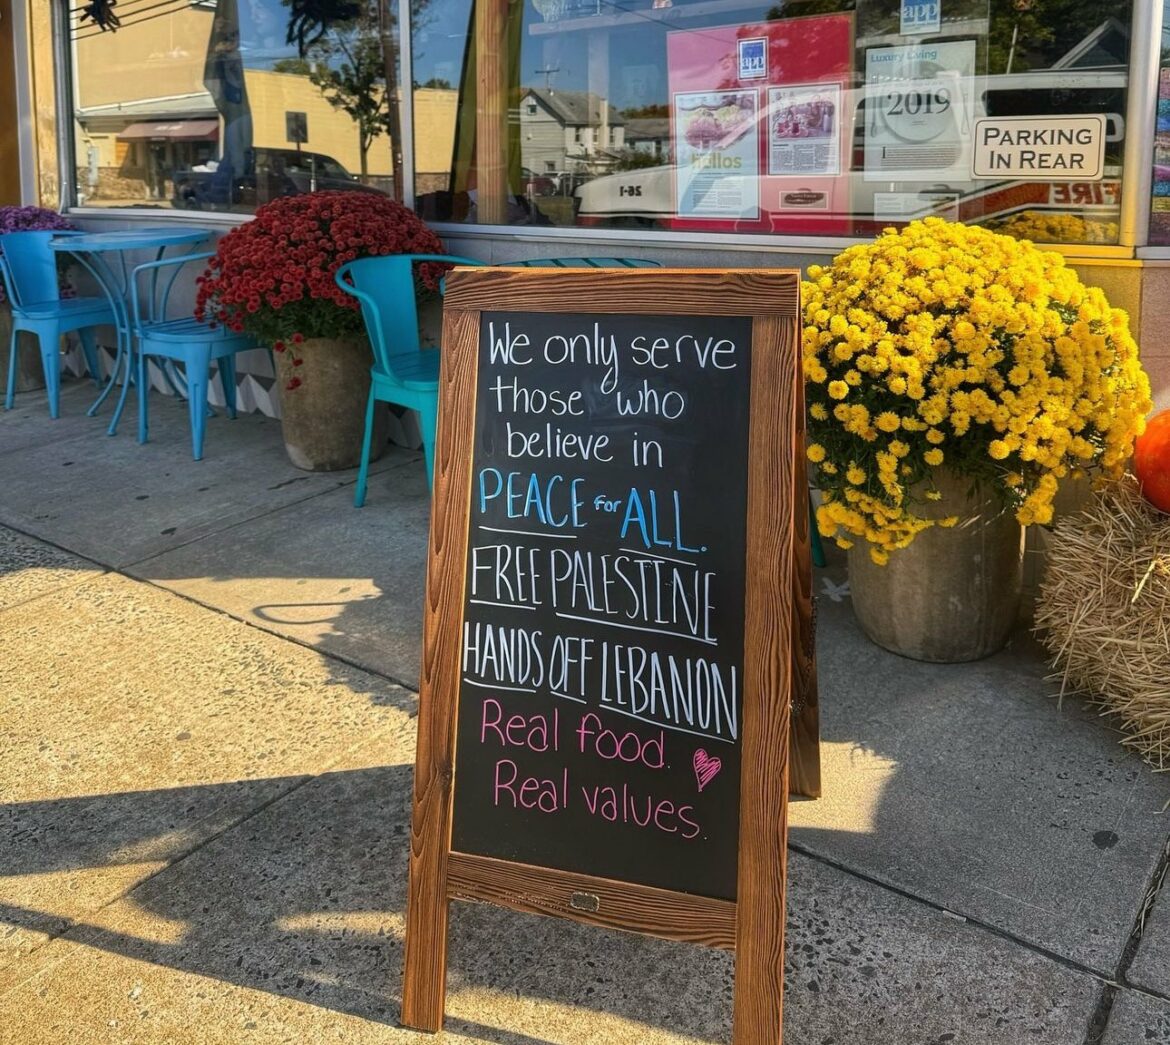 app
app
Luxury Living
2019
PARKING
IN REAR
26-1
FIRE
We only serve
those who
believe in
PEACE for ALL.
FREE PALESTINE
HANDS OFF LEBANON
Real food.
Real values.